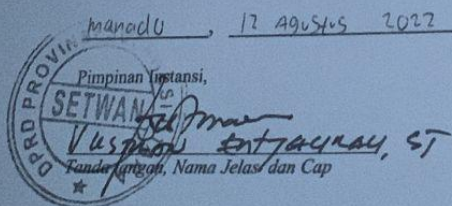 Manado, 12 Agustus 2022
Pimpinan Instansi,
DPRD PROVINSI
SETWAN
ST
Tanda tangan, Nama Jelas dan Cap